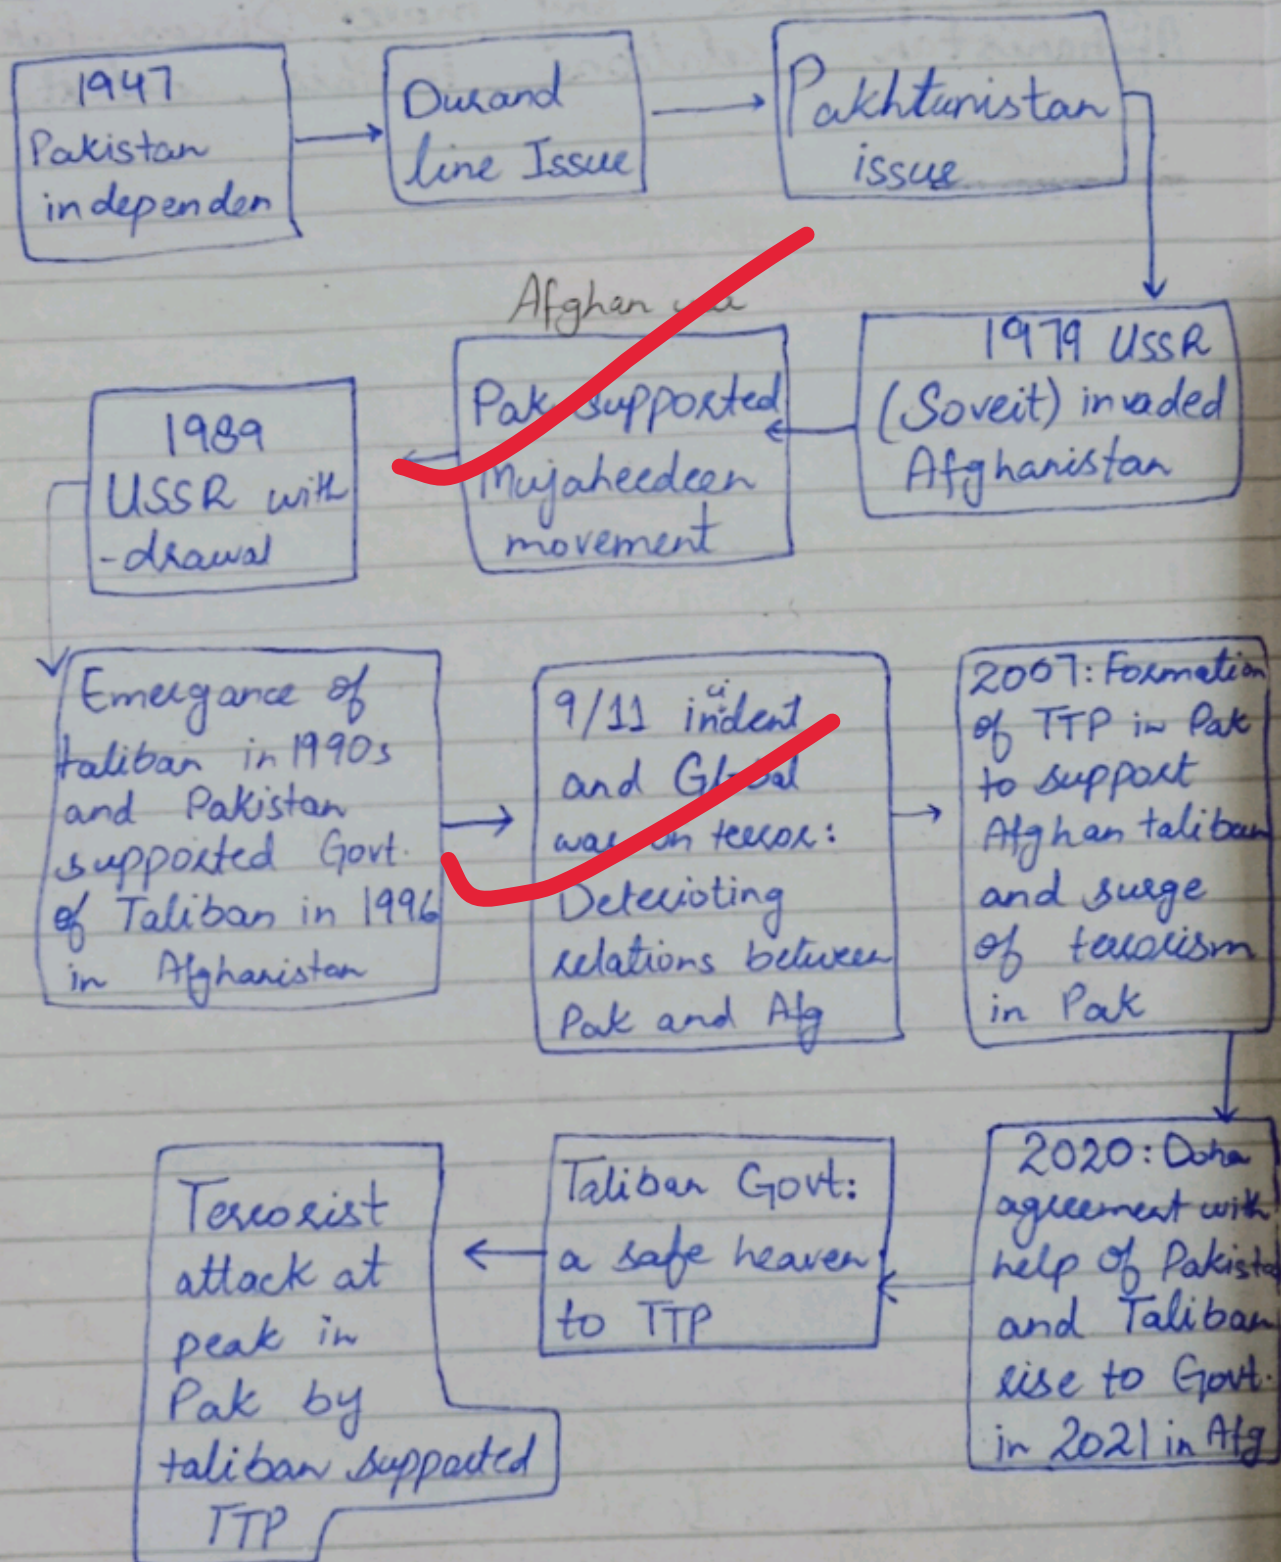 1947
Pakistan
independen
Durand
line Issue
Pakhtunistan
issue
1979 USSR
(Soveit) invaded
Afghanistan
Afghan
Pak supported
Mujaheedeen
movement
1989
USSR with
-drawal
Emergance of
taliban in 1990s
and Pakistan
supported Govt.
of Taliban in 1996
in Afghanistan
9/11 incident
and Global
war on terror:
Deterioting
relations between
Pak and Afg
2007: Formation
of TTP in Pak
to support
Afghan taliban
and surge
of terrorism
in Pak
2020: Doha
agreement with
help of Pakista
and Taliban
rise to Govt.
in 2021 in Afg
Taliban Govt:
a safe heaven
to TTP
Terrorist
attack at
peak in
Pak by
taliban supported
TTP